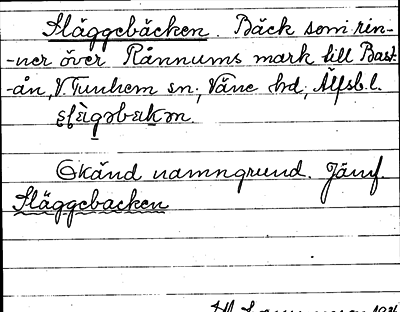 Släggebäcken. Bäck som rin-
-ner över Rånnums mark till Bast-
-ån, V. Tunhem sn; Väne hd, Älfsb. l.
Okänd namngrund. Jämf.
Släggebacken